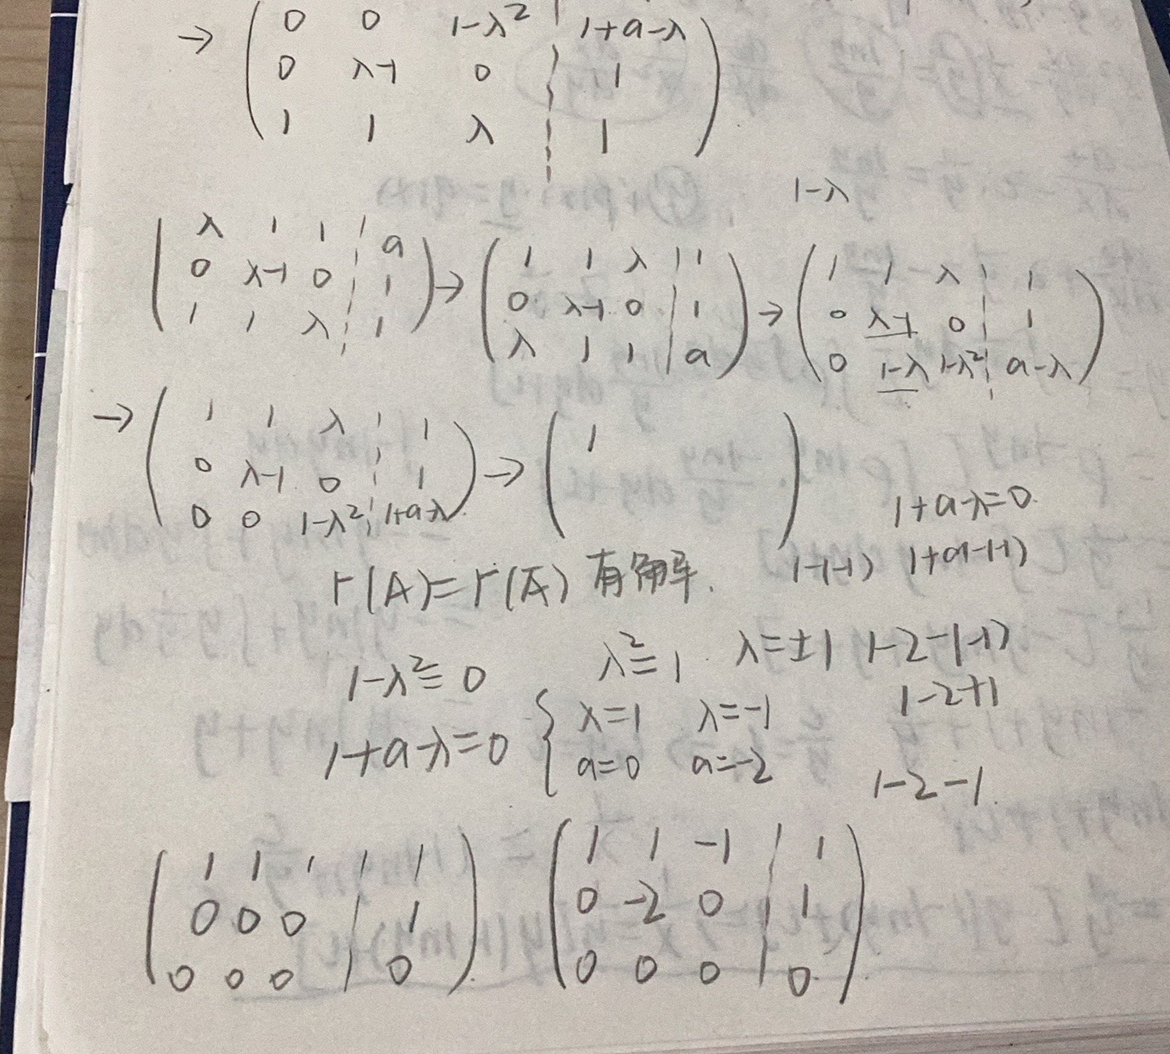 → ( 0 0 1-λ² ¦ 1+a-λ
0 λ-1 0 ¦ 1
1 1 λ ¦ 1 )
1-λ
( λ 1 1 ¦ a
0 λ-1 0 ¦ 1
1 1 λ ¦ 1 ) → ( 1 1 λ | 1
0 λ-1 0 | 1
λ 1 1 | a ) → ( 1 1 λ ¦ 1
0 λ-1 0 ¦ 1
0 1-λ 1-λ² ¦ a-λ )
→ ( 1 1 λ ¦ 1
0 λ-1 0 ¦ 1
0 0 1-λ² ¦ 1+a-λ ) → ( 1 )
1+a-λ=0.
r(A)=r(Ā) 有解. 1-(-1) 1+a-(-1)
1-λ²=0 λ²=1. λ=±1 1-2-(-1)
1-2+1
1+a-λ=0 { λ=1 λ=-1
a=0 a=-2
1-2-1.
( 1 1 1 | 1
0 0 0 | 1
0 0 0 | 0 ) ( 1 1 -1 | 1
0 -2 0 | 1
0 0 0 | 0 )